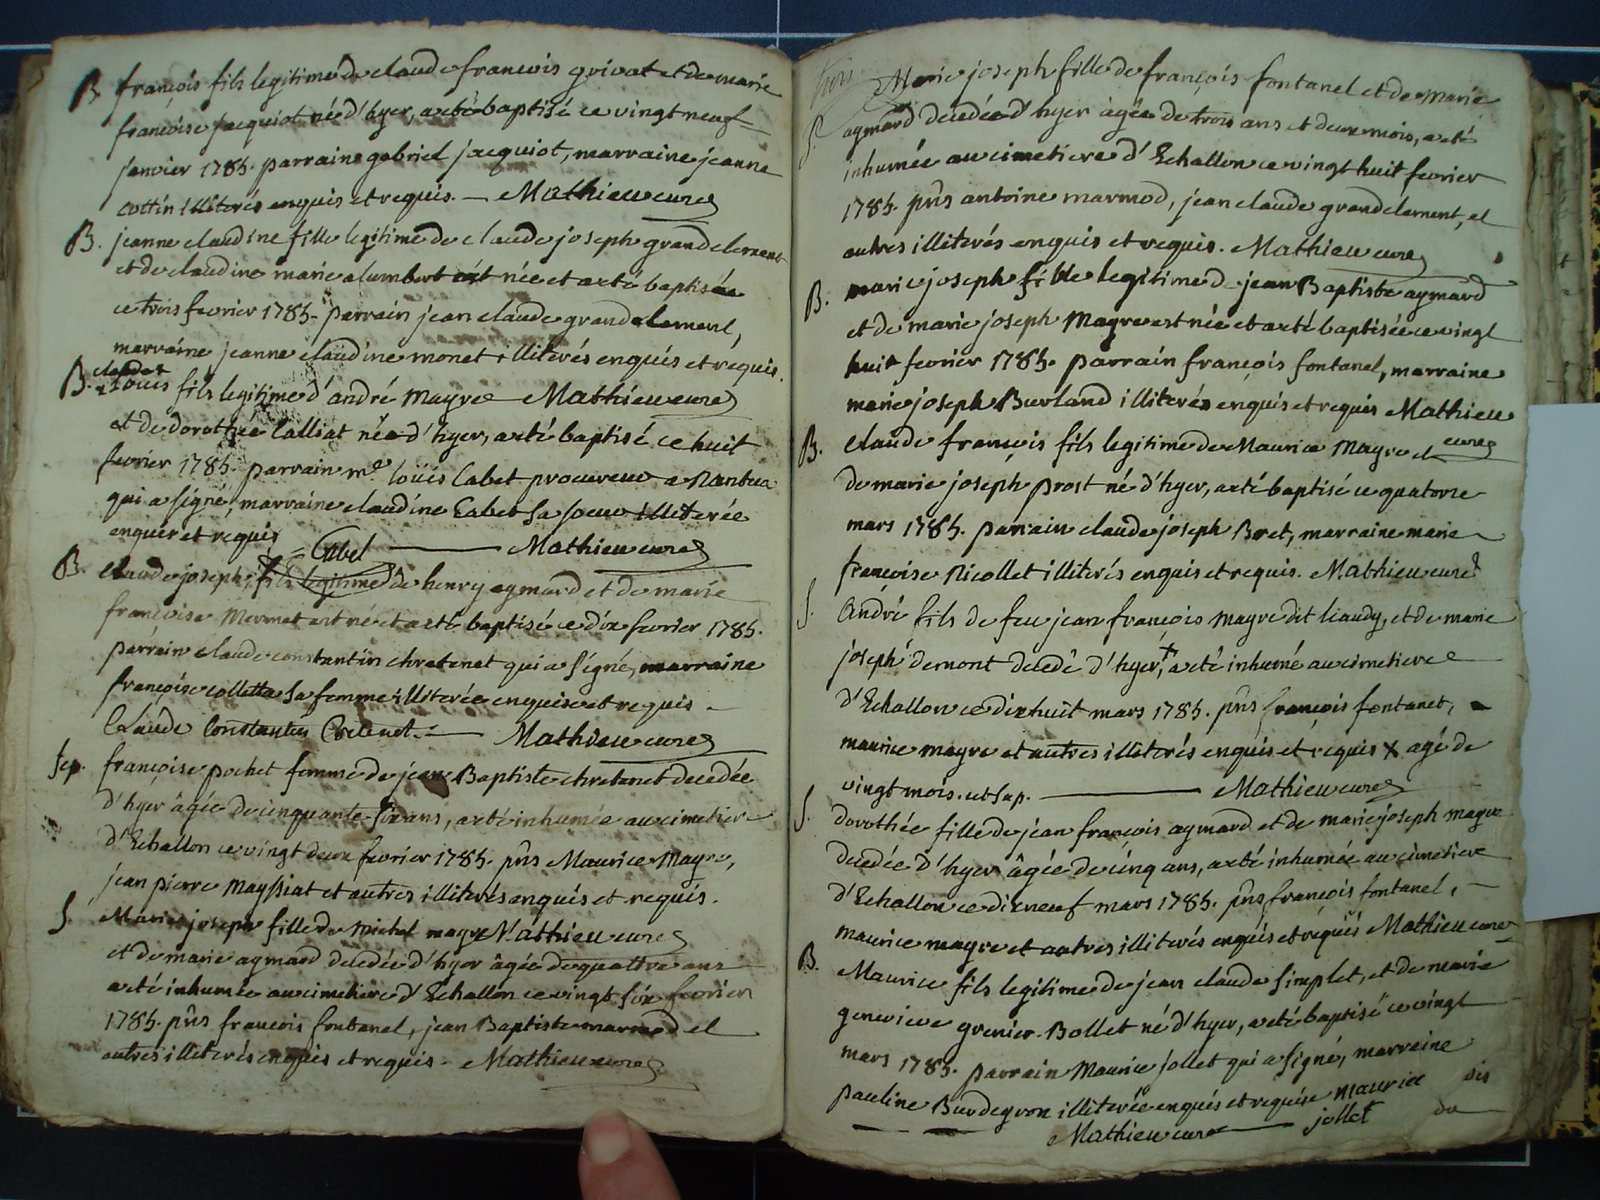 B françois fils legitime de claude françois grivat et de marie
françoise jacquiot né d'hyer, a eté baptisé ce vingt neuf
janvier 1785. parrain gabriel jacquiot, marraine jeanne
cottin illiterés enquis et requis. — Mathieu curé
B. jeanne claudine fille legitime de claude joseph grandclement
et de claudine marie alumbert est née et a eté baptisée
ce trois fevrier 1785. parrain jean claude grandclement,
marraine jeanne claudine monet illiterés enquis et requis.
B. claude
Louis fils legitime d'andré Mayre — Mathieu curé
et de dorothée Lalliat né d'hyer, a eté baptisé ce huit
fevrier 1785. parrain me. loüis Cabet procureur a Nantua
qui a signé, marraine claudine Cabet sa soeur illiterée
enquer et requis = Cabet — Mathieu curé
B. Claude joseph fils legitime de henry aymard et de marie
françoise Mermet est né et a eté baptisé ce dix fevrier 1785.
parrain claude constantin chretenet qui a signé, marraine
françoise collette sa femme illiterée enquise et requis —
Claude Constantin Cretenet. — Mathieu curé
Sep. françoise pochet femme de jean Baptiste chretenet decedée
d'hyer âgée de cinquante six ans, a eté inhumée au cimetiere
d'Echallon ce vingt deux fevrier 1785. pñs Maurice Mayre,
jean pierre Mayssiat et autres illiterés enqués et requis.
S. Marie joseph fille de Michel mayre Mathieu curé
et de marie aymard decedée d'hyer âgée de quattre ans
a eté inhumée au cimetiere d'Echallon ce vingt six fevrier
1785. pñs francois fontanel, jean Baptiste marmod et
autres illiterés enquis et requis — Mathieu curé
S. Marie joseph fille de françois fontanel et de Marie
aymard decedée d'hyer âgée de trois ans et deux mois, a eté
inhumée au cimetiere d'Echallon ce vingt huit fevrier
1785. pñs antoine marmod, jean claude grandclement, et
autres illiterés enquis et requis. Mathieu curé
B. marie joseph fille legitime de jean Baptiste aymard
et de marie joseph Mayre est née et a eté baptisée ce vingt
huit fevrier 1785. parrain françois fontanel, marraine
marie joseph Burland illiterés enquis et requis Mathieu
curé
B. Claude françois fils legitime de Maurice Mayre et
de marie joseph prost né d'hyer, a eté baptisé ce quatorze
mars 1785. parrain claude joseph Bret, marraine marie
françoise Nicollet illiterés enquis et requis. Mathieu curé
S. André fils de feu jean françois Mayre dit liaudy, et de marie
joseph demont decedé d'hyer, x a eté inhumé au cimetiere
d'Echallon ce dix huit mars 1785. pñs françois fontanel,
maurice mayre et autres illiterés enqués et requis x agé de
vingt mois. ut sup. — Mathieu curé
S. dorothée fille de jean françois aymard et de marie joseph mayre
decedée d'hyer âgée de cinq ans, a eté inhumée au cimetiere
d'Echallon ce dix neuf mars 1785. pñs françois fontanel, —
maurice mayre et autres illiterés enqués et requis Mathieu curé
B. Maurice fils legitime de jean claude simplet, et de marie
genevieve grenier-Bollet né d'hyer, a eté baptisé ce vingt
mars 1785. parrain Maurice jollet qui a signé, marraine
pauline Burdeyron illiterée enqués et requise maurice
Mathieu curé — jollet